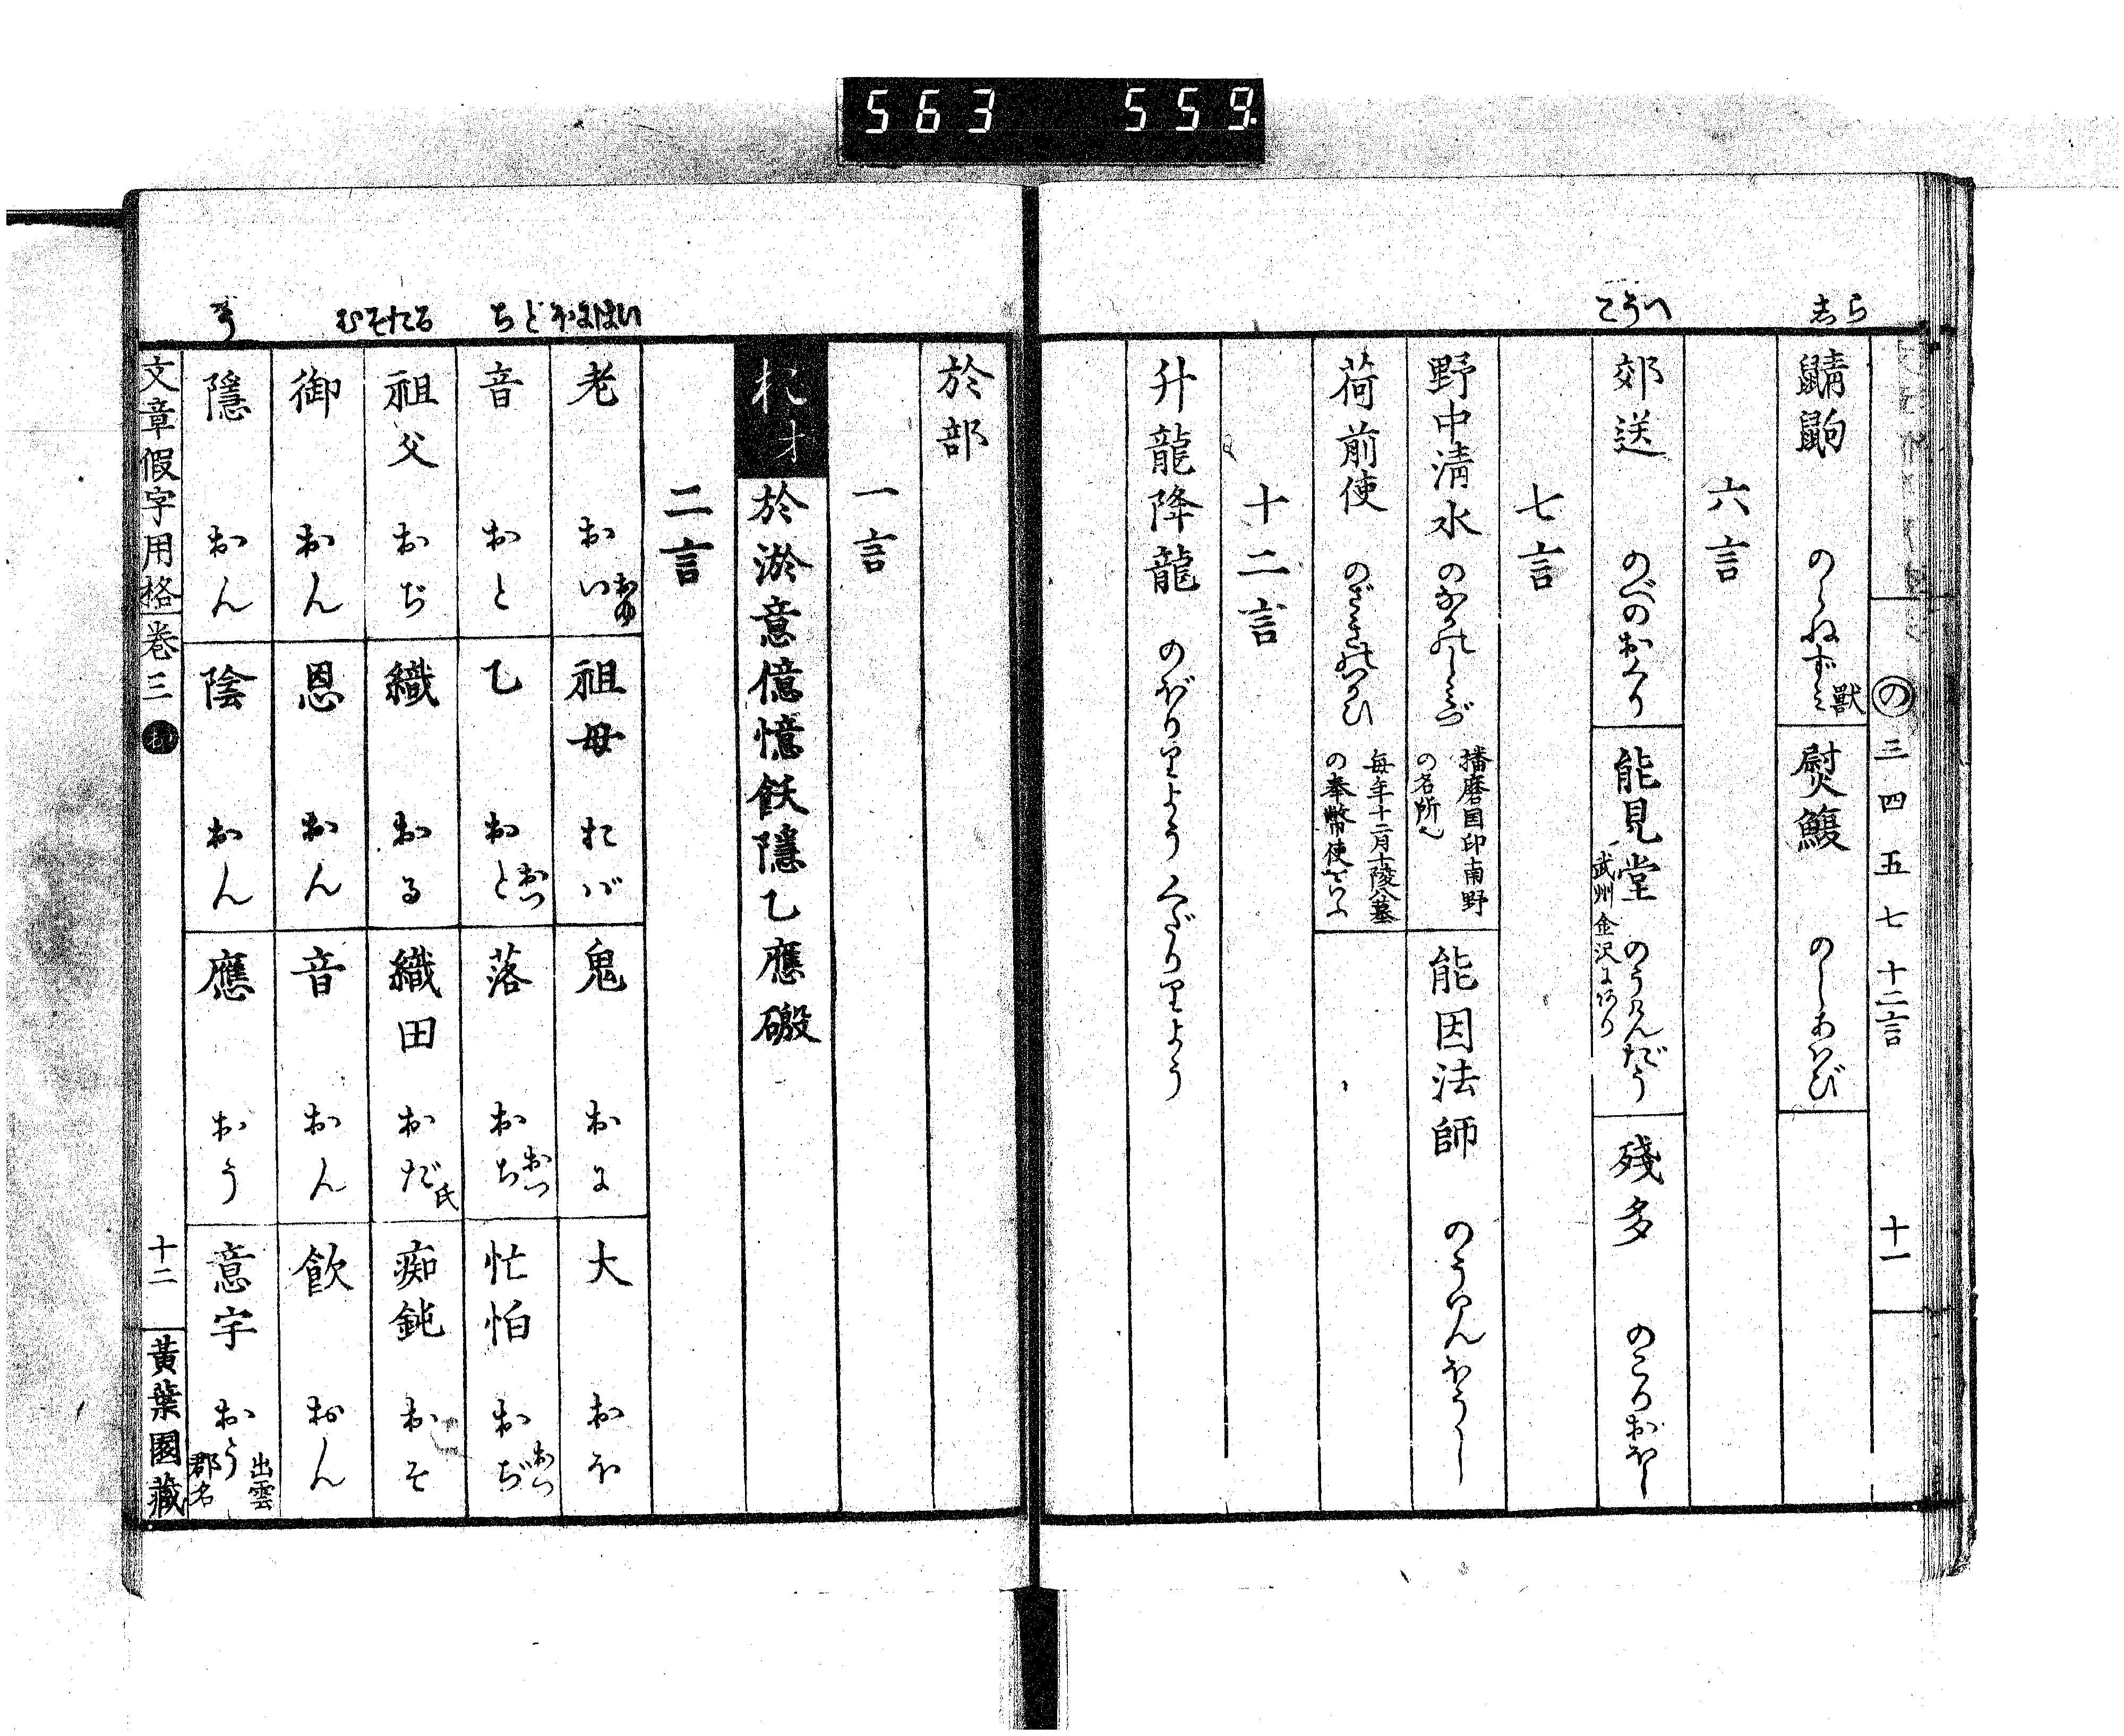 563 559
しら
こうへ
の 三 四 五 七 十二言 十一
鼱鼩 のらねずみ 獣
熨鰒 のしあはび
六言
郊送 のべのおくり
能見堂 のうけんだう 武州金沢にあり
殘多 のこりおほし
七言
野中淸水 のなかのしみづ 播磨国印南野の名所也
能因法師 のういんほうし
荷前使 のざきのつかひ 毎年十二月十陵八墓の奉幣使をいふ
十二言
升龍降龍 のぼりりよう くだりりよう
いはにほおどち
るたそむ
う
於部
一言
おオ 於淤意億憶飫隱乙應磤
二言
老 おい おゆ
祖母 おば
鬼 おに
大 おほ
音 おと
乙 おと おつ
落 おち おつ
忙怕 おぢ おつ
祖父 おぢ
織 おる
織田 おだ 氏
痴鈍 おそ
御 おん
恩 おん
音 おん
飲 おん
隱 おん
陰 おん
應 おう
意宇 おう 出雲郡名
文章假字用格 巻三 十二 黃葉園藏